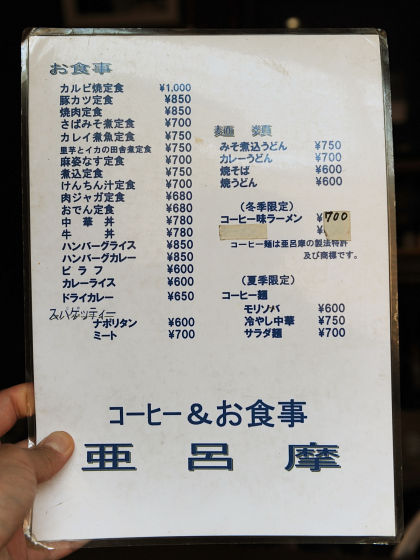 お食事
カルビ焼定食 ¥1,000
豚カツ定食 ¥850
焼肉定食 ¥850
さばみそ煮定食 ¥700
カレイ煮魚定食 ¥750
里芋とイカの田舎煮定食 ¥750
麻婆なす定食 ¥700
煮込定食 ¥750
けんちん汁定食 ¥700
肉ジャガ定食 ¥680
おでん定食 ¥680
中華丼 ¥780
牛丼 ¥780
ハンバーグライス ¥850
ハンバーグカレー ¥850
ピラフ ¥600
カレーライス ¥600
ドライカレー ¥650
スパゲッティー
ナポリタン ¥600
ミート ¥700
麺類
みそ煮込うどん ¥750
カレーうどん ¥700
焼そば ¥600
焼うどん ¥600
(冬季限定)
コーヒー味ラーメン ¥700
コーヒー麺は亜呂摩の製法特許
及び商標です。
(夏季限定)
コーヒー麺
モリソバ ¥600
冷やし中華 ¥750
サラダ麺 ¥700
コーヒー&お食事
亜呂摩